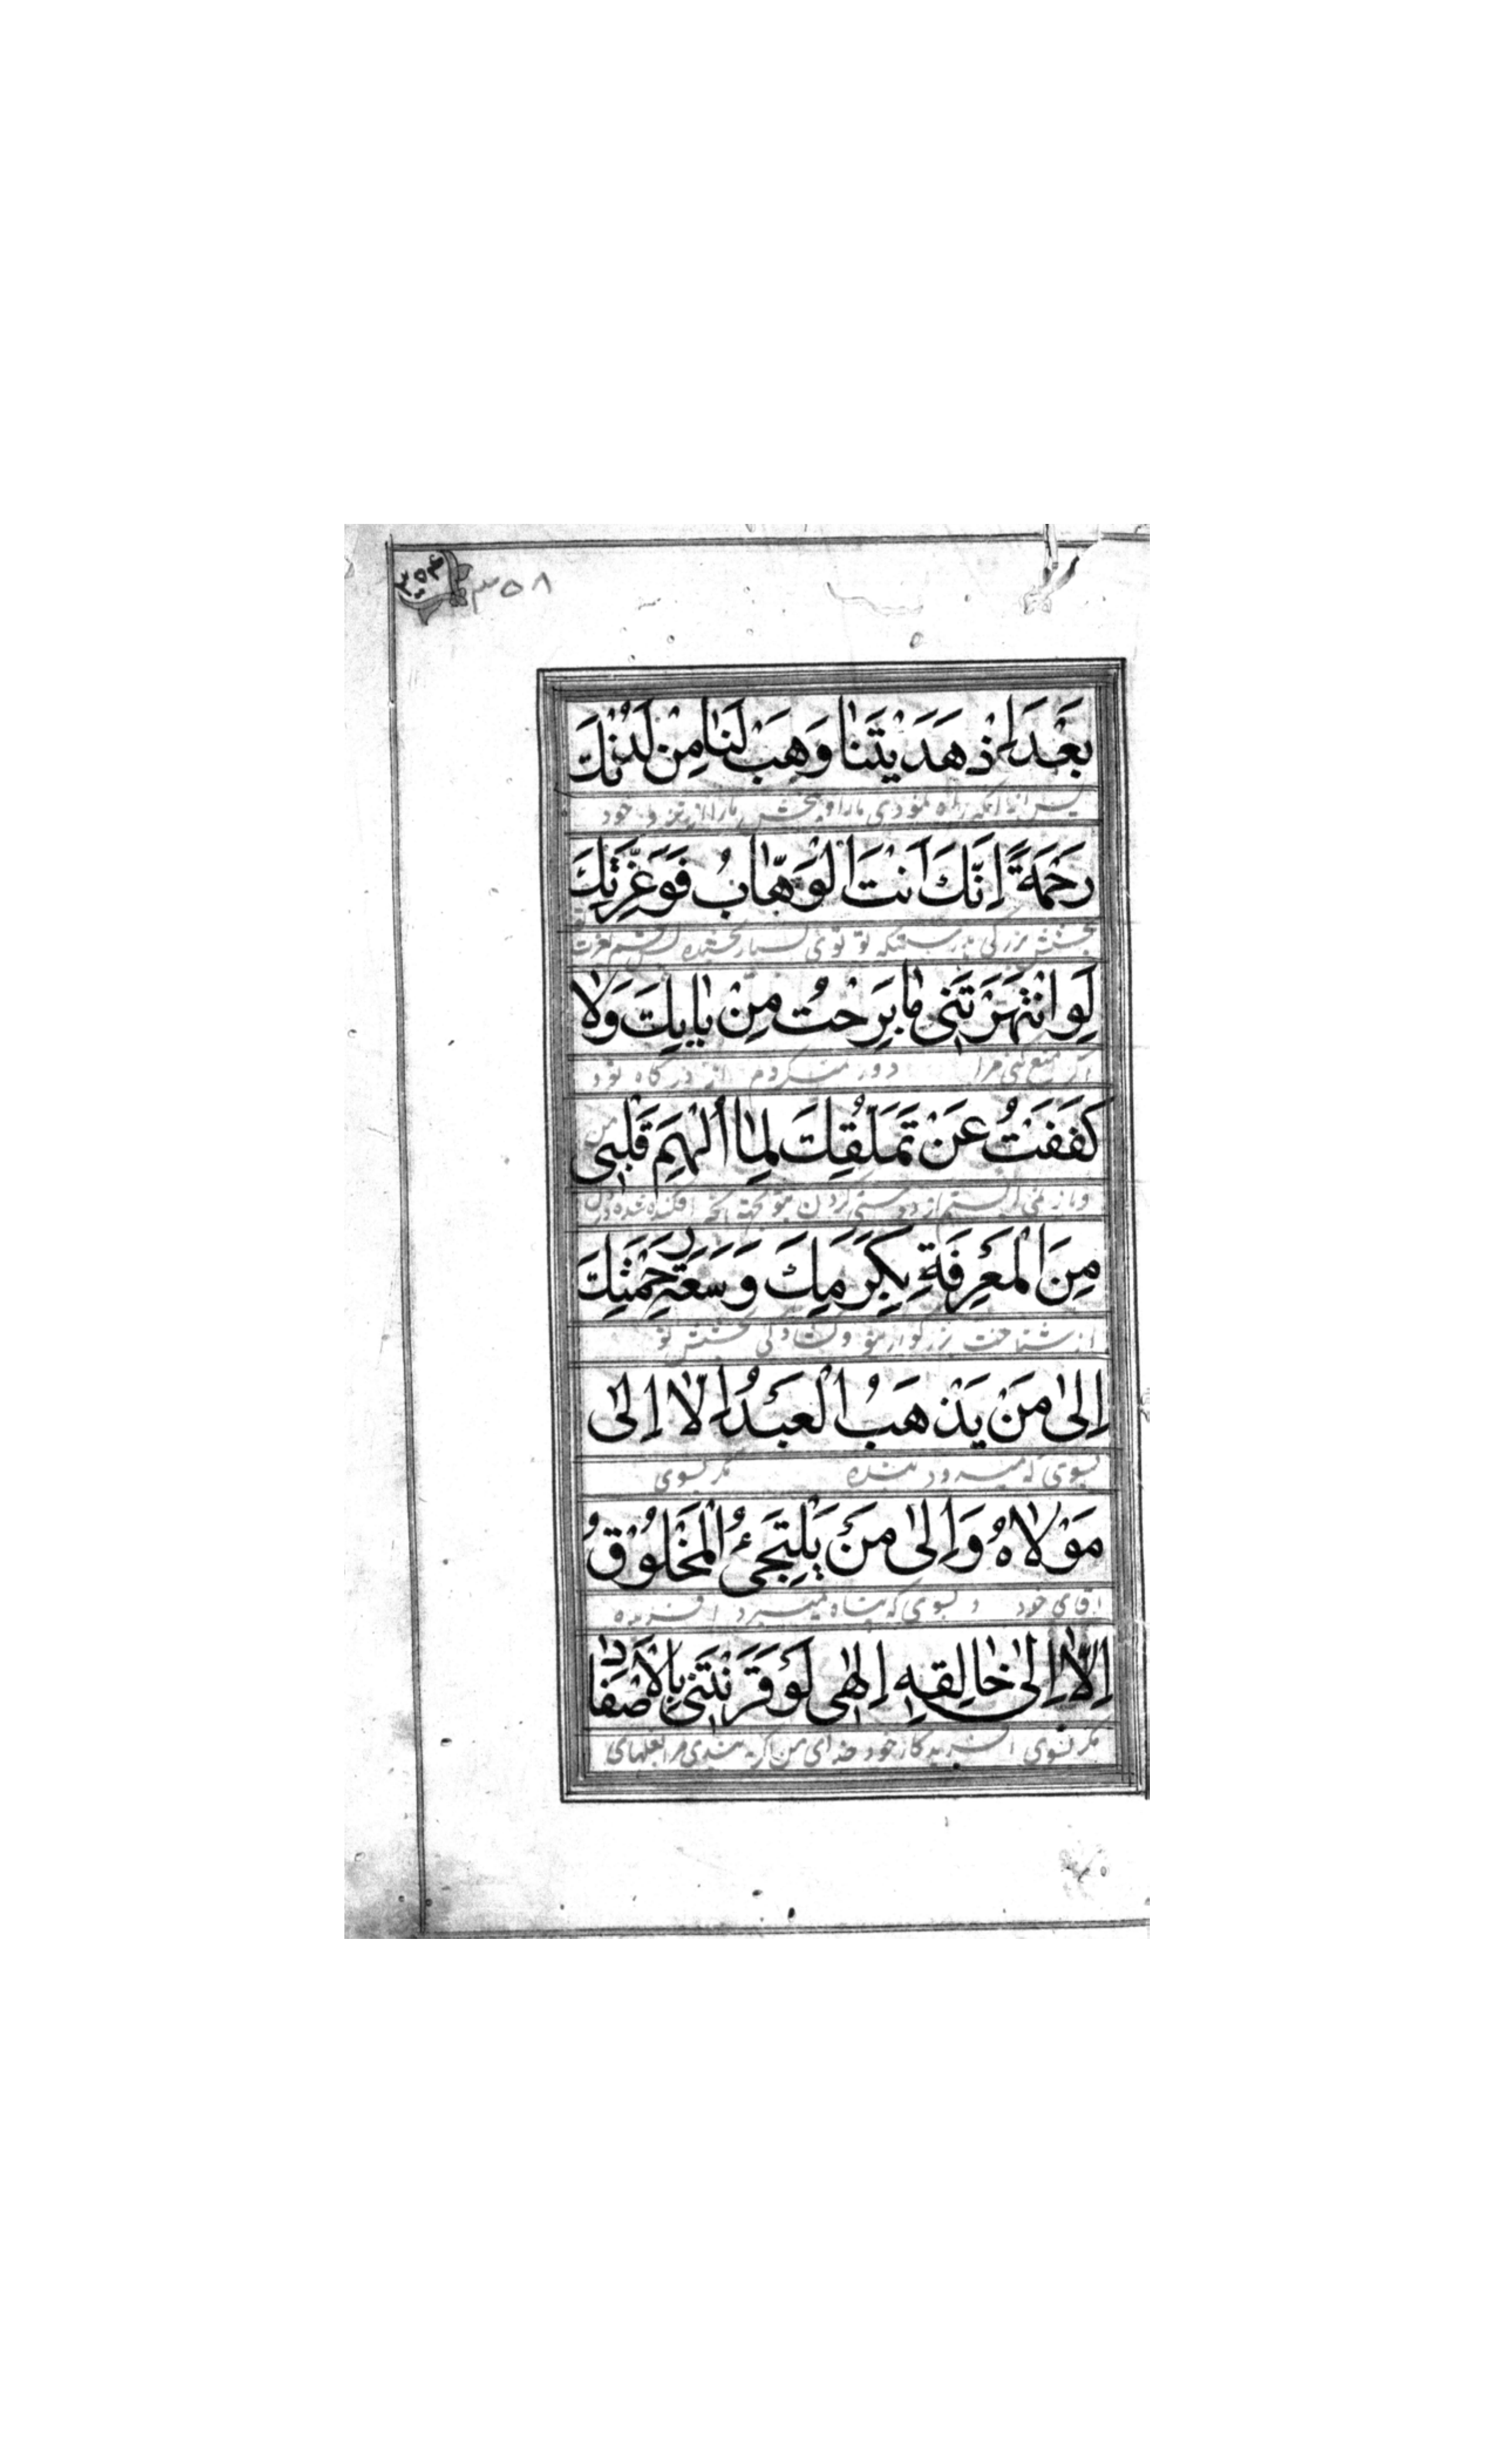 ۳۵۴ ۳۵۸
بَعْدَ اِذْ هَدَيْتَنٰا وَهَبْ لَنٰا مِنْ لَدُنْكَ
پس از آنکه راه نمودی ما را و ببخش ما را از نزد خود
رَحْمَةً اِنَّكَ اَنْتَ الْوَهّٰابُ فَوَعِزَّتِكَ
بخشش بزرگی بدرستیکه تو توئی بسیار بخشنده پس قسم بعزت
لَوِ انْتَهَرْتَنى مٰا بَرِحْتُ مِنْ بٰابِكَ وَلٰا
اگر منع کنی مرا دور نمیگردم از درگاه تو
كَفَفْتُ عَنْ تَمَلُّقِكَ لِمٰا اُلْهِمَ قَلْبى
و باز نمی ایستم از دوستی کردن بتو بجهة آنچه افکنده شده در دل من
مِنَ الْمَعْرِفَةِ بِكَرَمِكَ وَسَعَةِ رَحْمَتِكَ
از شناخت بزرگواری تو و گشادگی بخشش تو
اِلىٰ مَنْ يَذْهَبُ الْعَبْدُ اِلٰا اِلىٰ
بسوی که میرود بنده مگر بسوی
مَوْلٰاهُ وَاِلىٰ مَنْ يَلْتَجِئُ الْمَخْلُوْقُ
آقای خود و بسوی که پناه میبرد آفریده
اِلّٰا اِلىٰ خٰالِقِهِ اِلٰهى لَوْ قَرَنْتَنى بِالْاَصْفٰادِ
مگر بسوی آفریدگار خود خدای من اگر به بندی مرا بغلهای